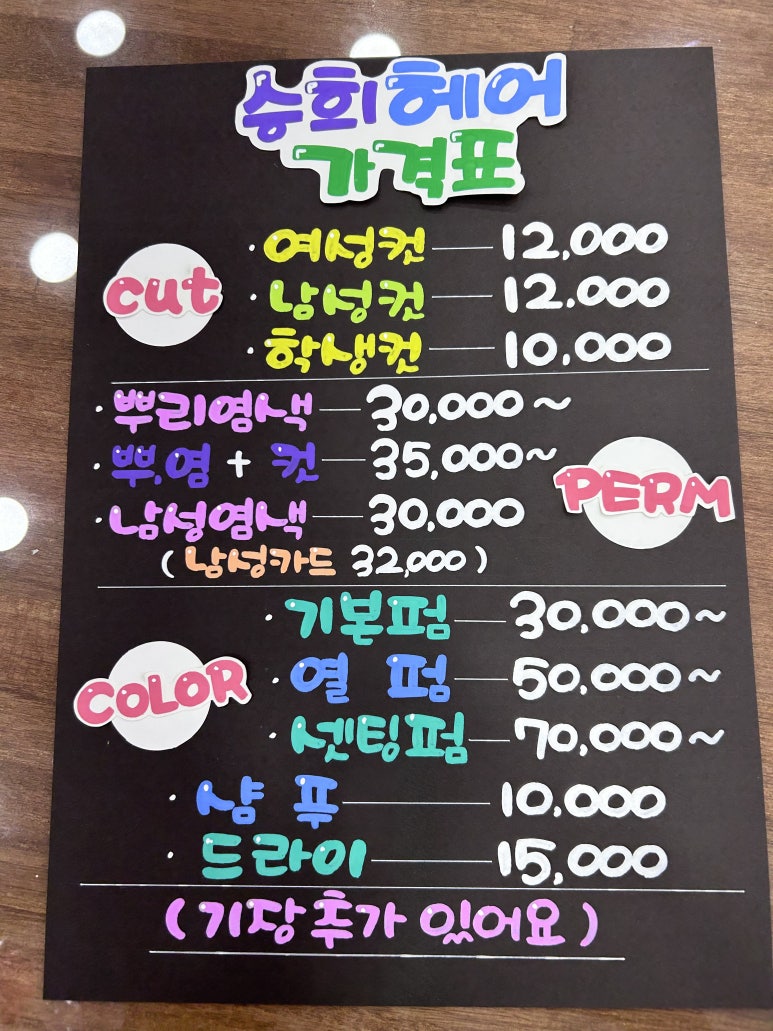 승희헤어
가격표
cut
· 여성컷 — 12,000
· 남성컷 — 12.000
· 학생컷 — 10,000
· 뿌리염색 — 30,000 ~
· 뿌.염 + 컷 — 35,000~
PERM
· 남성염색 — 30,000
( 남성카드 32,000 )
· 기본펌 — 30,000~
COLOR
· 열 펌 — 50,000~
· 셋팅펌 — 70,000~
· 샴 푸 — 10,000
· 드라이 — 15,000
( 기장 추가 있어요 )